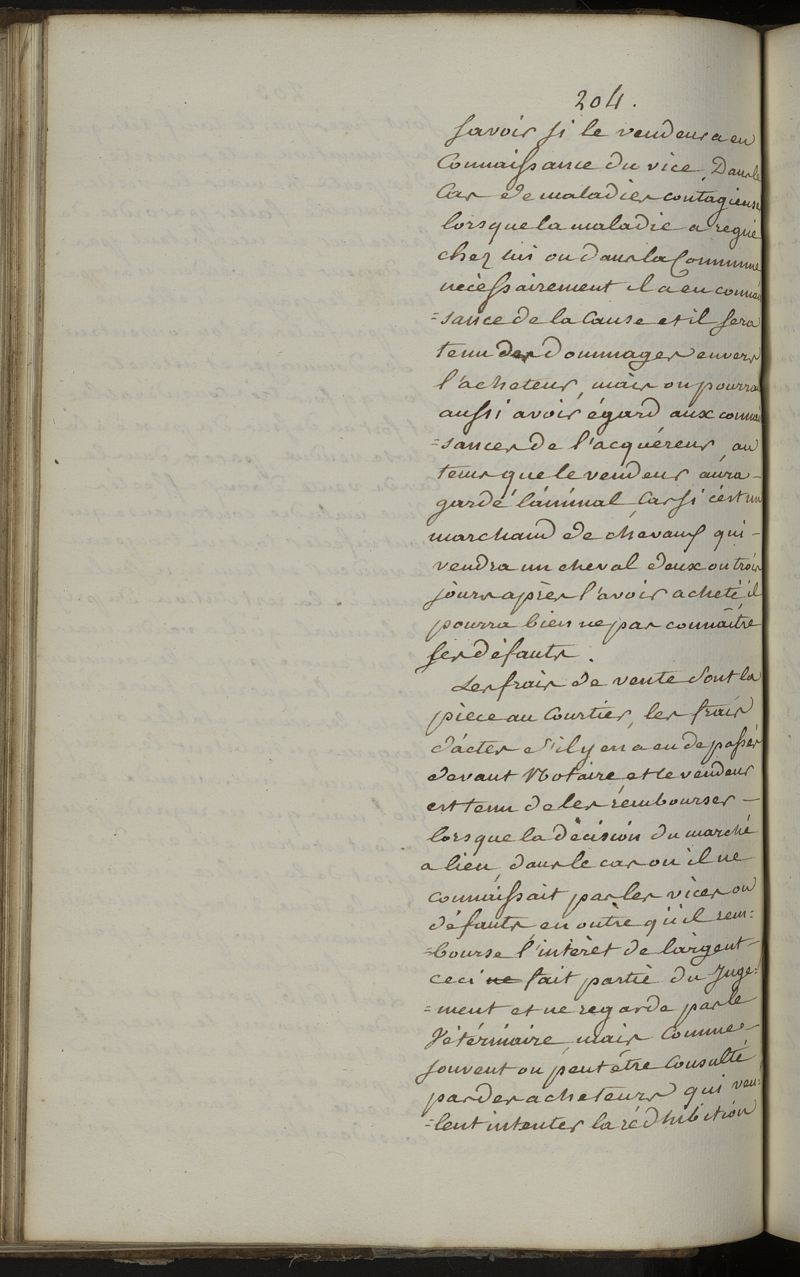 204.
Savoir si le vendeur a eu
Connaissance du vice, Dans le
Cas de maladies contagieuse
lorsque la maladie a regné
chez lui ou dans la Commune
necessairement il a eu connai
=sance de la Cause et il sera
tenu des dommages envers
l'acheteur, mais on pourra
aussi avoir égard aux connai
=sances de l'acquéreur, au
tems que le vendeur aura -
gardé l'animal Car si c'est un
marchand de chevaux qui -
vendra un cheval deux ou trois
jours après l'avoir acheté il
pourra bien ne pas connaître
ses défauts.
Les frais de vente sont la
pièce au Courtier, les frais
d'actes s'il y en a eu de passés
devant Notaire et le vendeur
est tenu de les rembourser -
lorsque la décision du marché
a lieu, dans le cas ou il ne
connaissait pas les vices ou
défauts, en outre qu'il rem=
=bourse l'intérêt de l'argent -
ceci ne fait partie du Juge=
=ment et ne regarde pas le
Vétérinaire, mais comme -
souvent on peut être Consulté
par des acheteurs qui veu=
=lent intenter la rédhibition